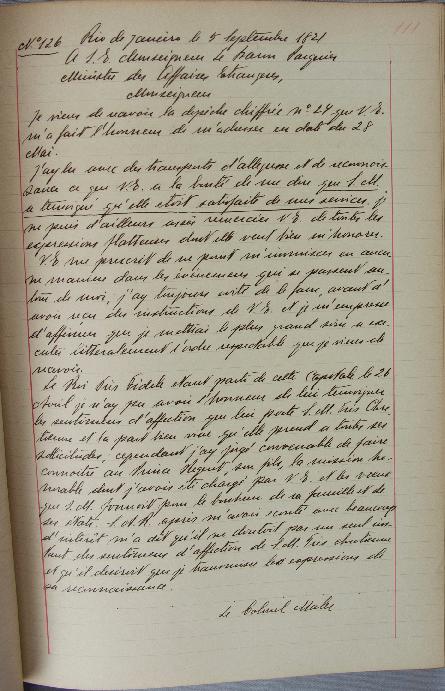 111
N° 126 Rio de Janeiro le 5 Septembre 1821
A S. E. Monseigneur le Baron Pasquier
Ministre des Affaires Etrangères,
Monseigneur
Je viens de recevoir la depêche chiffrée n° 24 que V. E.
m'a fait l'honneur de m'adresser en date du 28
Mai.
J'ay lu avec des transports d'allegresse et de reconnois-
sance ce que V. E. a la bonté de me dire que S. M.
a temoigné qu'elle etoit satisfaite de mes services. je
ne puis d'ailleurs assés remercier V. E. de toutes les
expressions flatteuses dont elle veut bien m'honorer.
V. E. me prescrit de ne point m'immiscer en aucu-
ne maniere dans les évènemens qui se passent au-
tour de moi, j'ay toujours evité de le faire, avant d'
avoir reçu des instructions de V. E. et je m'empresse
d'affirmer que je mettrai le plus grand soin a exe-
cuter littéralement l'ordre respectable que je viens de
recevoir.
Le Roi Très Fidele etant parti de cette Capitale le 26
Avril je n'ay peu avoir l'honneur de lui temoigner
les sentimens d'affection que lui porte S. M. Très Chre-
tienne et la part bien vive qu'elle prend a toutes ses
sollicitudes, cependant j'ay jugé convenable de faire
connoitre au Prince Regent son fils la mission ho-
norable dont j'avois eté chargé par V. E. et les vœux
que S. M. formoit pour le bonheur de sa famille et de
ses états. S. A. R. après m'avoir ecouté avec beaucoup
d'intérêt m'a dit qu'il ne doutoit pas un seul ins-
tant des sentimens d'affection de S. M. Très chretienne
et qu'il desiroit que je transmisse les expressions de
sa reconnaissance.
le Colonel Maler